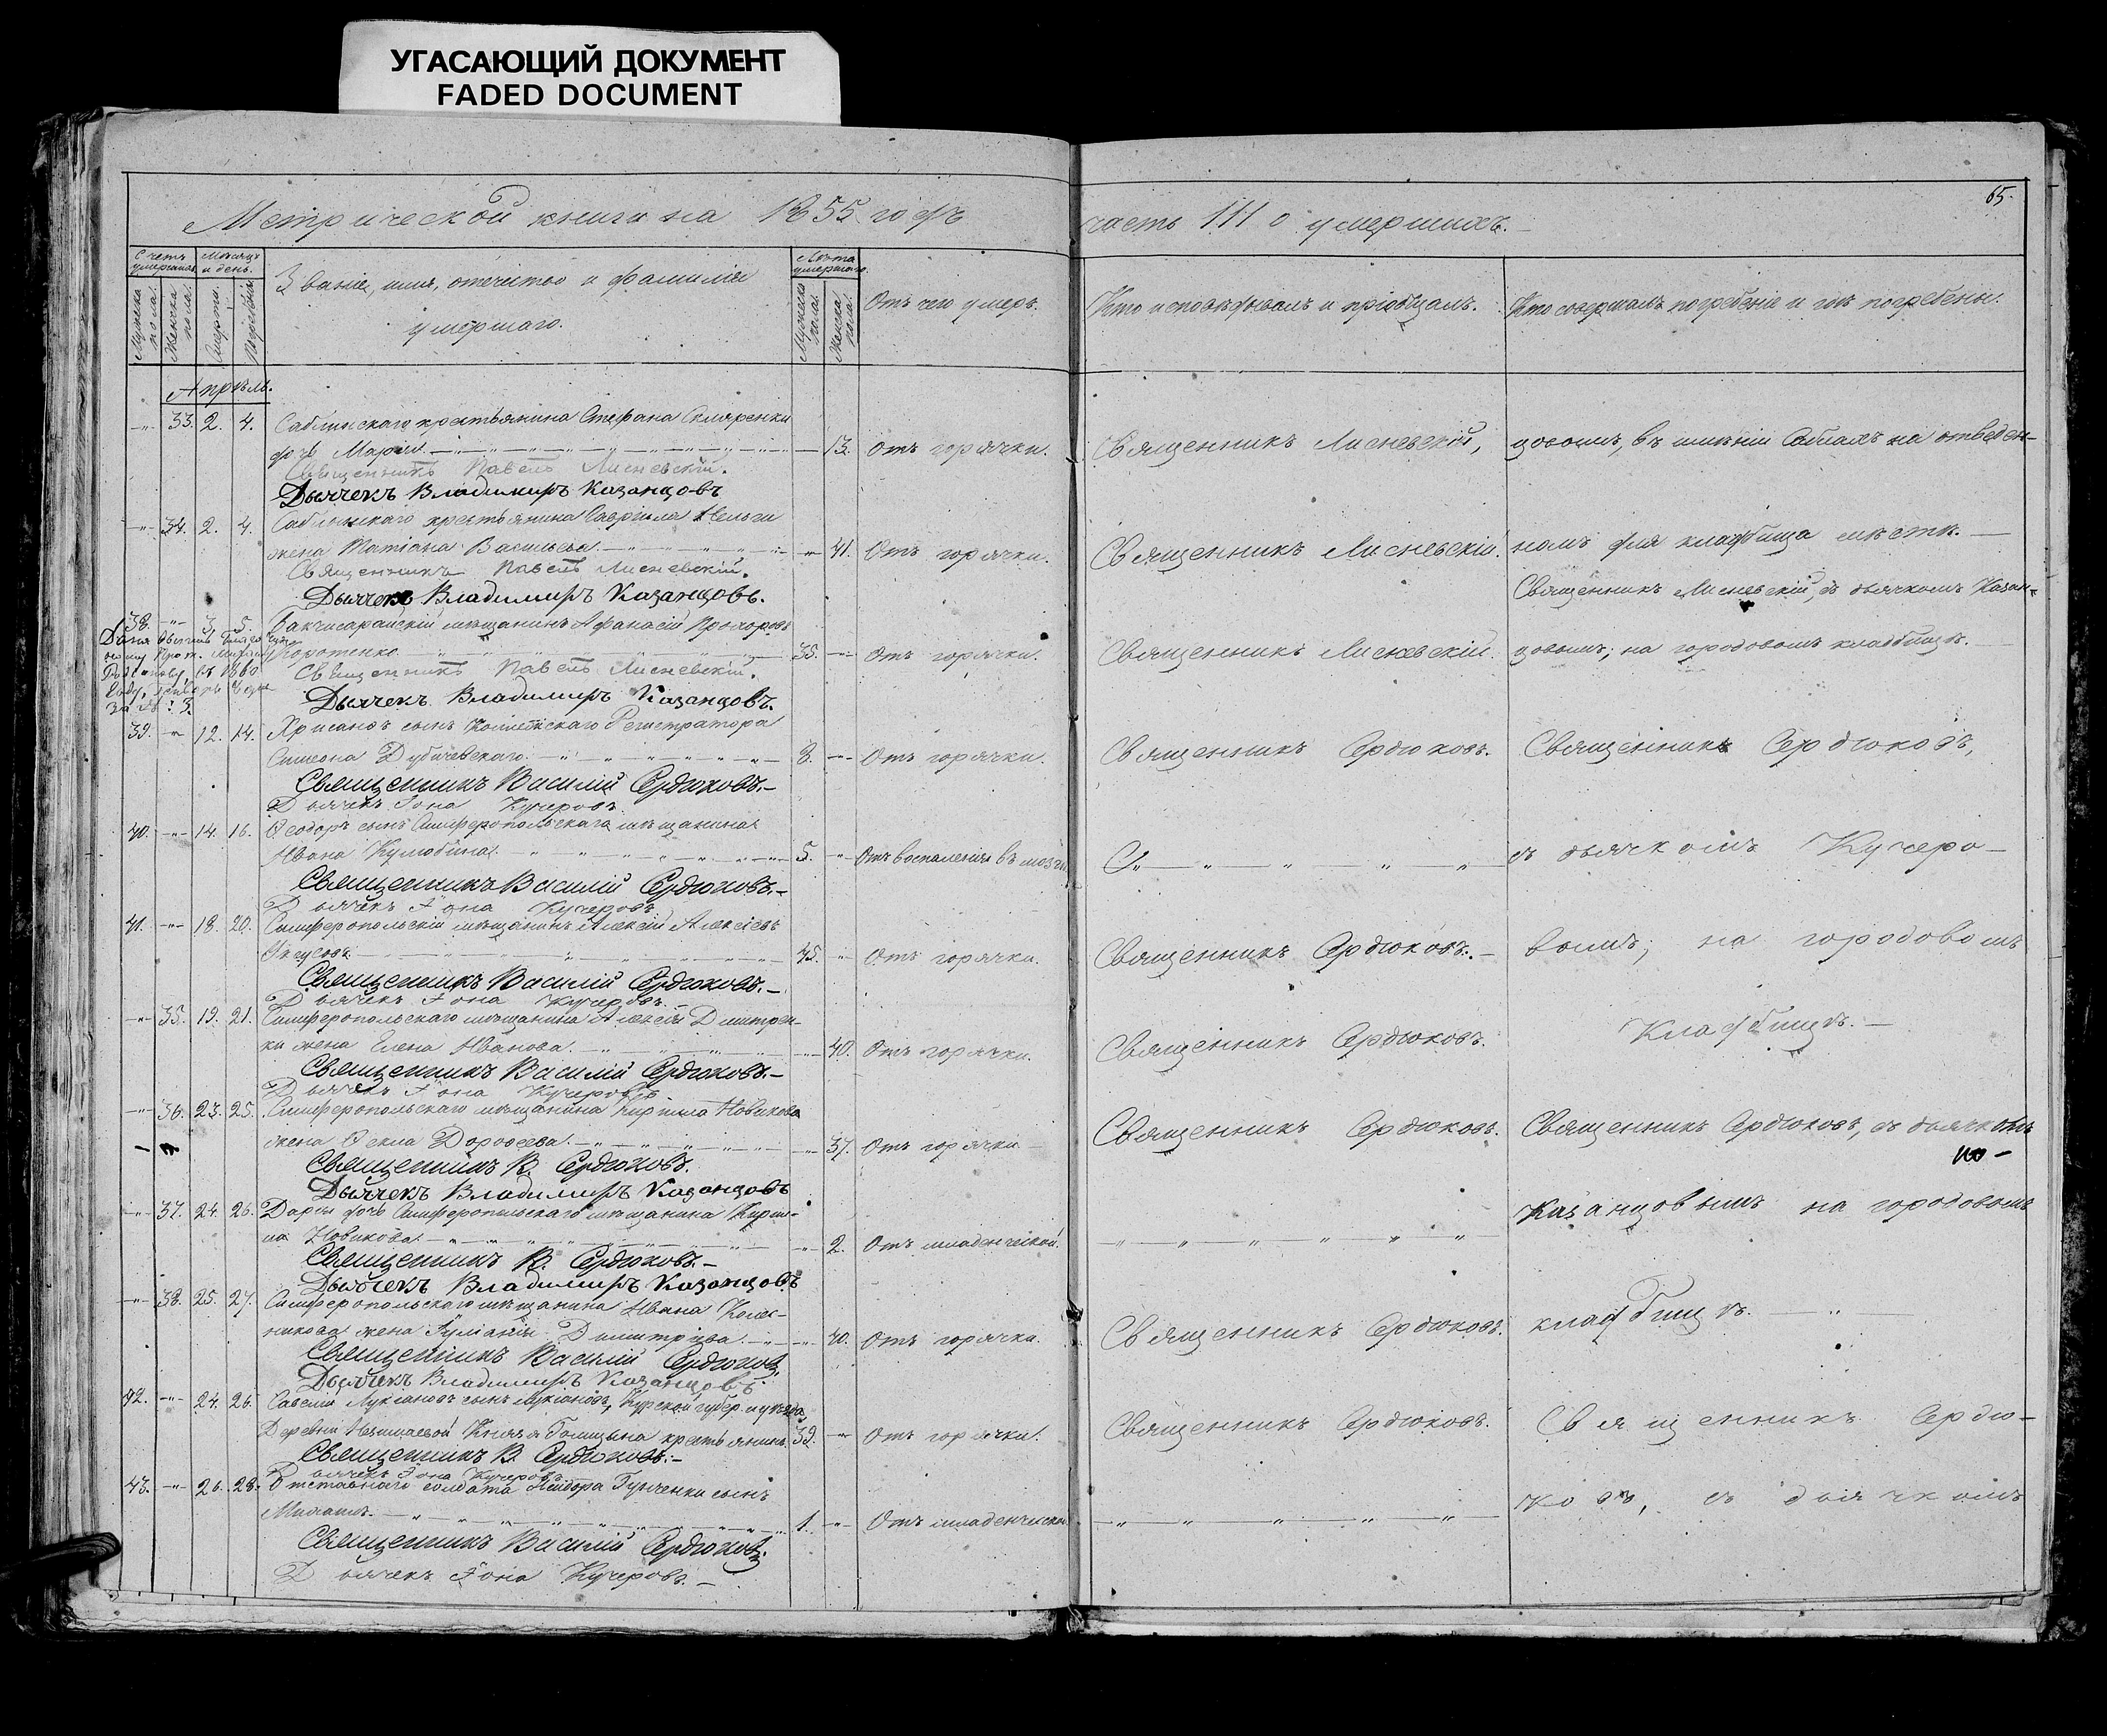 УГАСАЮЩИЙ ДОКУМЕНТ
FADED DOCUMENT
65.
Метрической книги на 1855 годъ
часть III о умершихъ.
Счетъ умершихъ.
Мѣсяцъ и день.
Званіе, имя, отечество и фамилія
умершаго.
Лѣта умершаго.
Мужеска пола.
Женска пола.
Смерти.
Погребенія
Мужеска пола.
Женска пола.
Отъ чего умеръ.
Кто исповѣдывалъ и пріобщалъ.
Кто совершалъ погребеніе и гдѣ погребены.
Апрѣль.
33. 2. 4. Саблынскаго крестьянина Стефана Скляренки
дочь Марія 13. Отъ горячки. Священникъ Лисневскій, цовымъ, въ имѣніи Саблахъ на отведен-
Священникъ Павелъ Лисневскій.
Дьячекъ Владимиръ Казанцовъ
34. 2. 4. Саблынскаго крестьянина Гавріила
жена Татіана Васильева 41. Отъ горячки. Священникъ Лисневскій. номъ для кладбища мѣстѣ.
Священникъ Павелъ Лисневскій.
Дьячекъ Владимиръ Казанцовъ.
Священникъ Лисневскій, съ дьячкомъ Казан-
38. 3. 5. Бакчисарайскій мѣщанинъ Афанасій Прохоровъ
Коротенко 35. Отъ горячки. Священникъ Лисневскій. цовымъ; на городовомъ кладбищѣ.
Священникъ Павелъ Лисневскій.
Дьячекъ Владимиръ Казанцовъ.
39. 12. 14. Хрисанѳъ сынъ Коллежскаго Регистратора
Симеона Дубичевскаго 3. Отъ горячки. Священникъ Сердюковъ. Священникъ Сердюковъ,
Священникъ Василій Сердюковъ.
Дьячекъ Іона Кучеровъ.
40. 14. 16. Ѳеодоръ сынъ Симферопольскаго мѣщанина
Ивана Кулюбина 5. Отъ воспаленія въ мозгу. съ дьячкомъ Кучеро-
Священникъ Василій Сердюковъ.
Дьячекъ Іона Кучеровъ
41. 18. 20. Симферопольскій мѣщанинъ Алексій Алексіевъ
45. Отъ горячки. Священникъ Сердюковъ. вымъ; на городовомъ
Священникъ Василій Сердюковъ.
Дьячекъ Іона Кучеровъ.
35. 19. 21. Симферопольскаго мѣщанина Алексія Дмитрен-
ки жена Елена Иванова. 40. Отъ горячки. Священникъ Сердюковъ. Кладбищѣ.
Священникъ Василій Сердюковъ.
Дьячекъ Іона Кучеровъ
36. 23. 25. Симферопольскаго мѣщанина Кирила Новикова
жена Ѳекла Дороѳеева. 37. Отъ горячки. Священникъ Сердюковъ. Священникъ Сердюковъ, съ дьячкомъ
Священникъ В. Сердюковъ.
Дьячекъ Владимиръ Казанцовъ
37. 24. 26. Дарья дочь Симферопольскаго мѣщанина Кири-
ла Новикова 2. Отъ младенческой. Казанцовымъ на городовомъ
Священникъ В. Сердюковъ.
Дьячекъ Владимиръ Казанцовъ
38. 25. 27. Симферопольскаго мѣщанина Ивана Колес-
никова жена Іуліанія Димитріева 40. Отъ горячки. Священникъ Сердюковъ. кладбищѣ.
Священникъ Василій Сердюковъ
Дьячекъ Владимиръ Казанцовъ
42. 24. 26. Савелій Лукіановъ сынъ Лукіановъ, Курской губер. и уѣзда
Деревни Князя Голицына крестьянинъ 39. Отъ горячки. Священникъ Сердюковъ. Священникъ Сердю-
Священникъ В. Сердюковъ.
Дьячекъ Іона Кучеровъ
43. 26. 28. Отставнаго солдата Исидора Гунченки сынъ
Михаилъ. 1. Отъ младенческой. ковъ, съ дьячкомъ
Священникъ Василій Сердюковъ.
Дьячекъ Іона Кучеровъ.